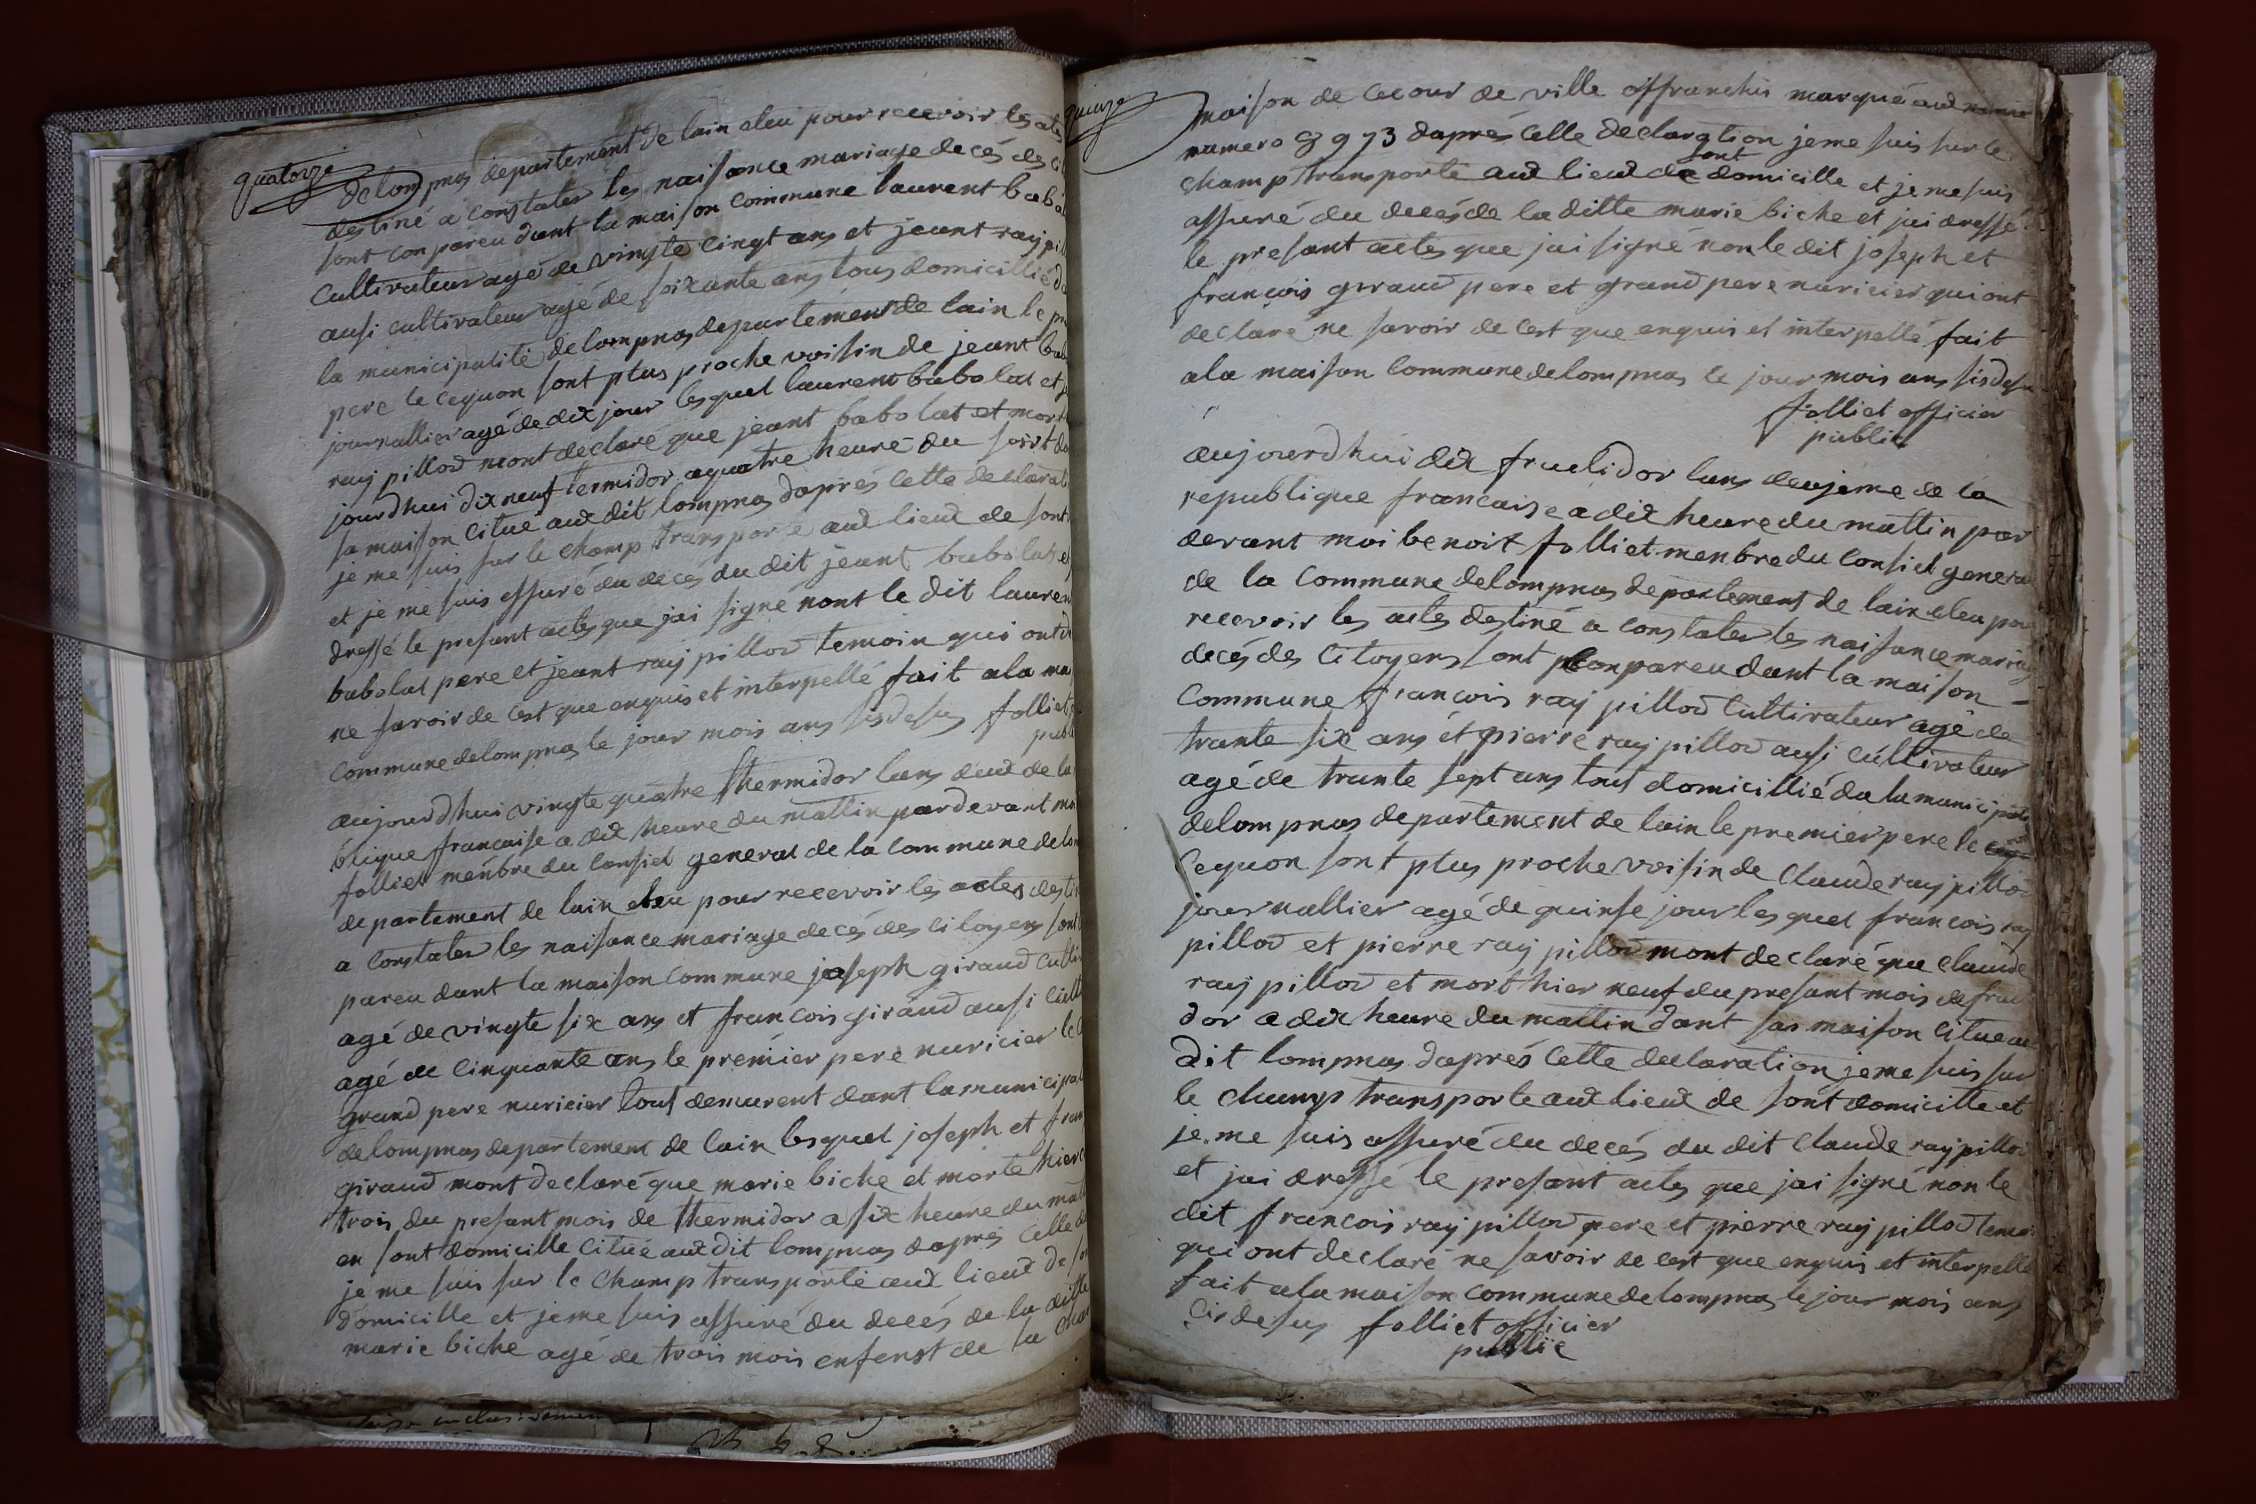 quatorze
delompnas departement de lain eleu pour recevoir les actes
destiné a constater les naisance mariage decés des
sont conpareu dant la maison commune laurent babo
cultivateur agé de vingte cingt ans et jeant ray pill
ausi cultivateur agé de soixante ans tous domicillié d
la municipalité delompnas departement de lain le pr
pere le cequon sont plus proche voisin de jeant bab
journallier agé de dix jour lesquel laurent babolat et j
ray pillod mont declaré que jeant babolat et mort
jourdhui dix neuf termidor aquatre heure du soirt d
sa maison citué aux dit lompnas daprés cette declarat
je me suis sur le champ transporté aux lieux de sont
et je me suis assuré du deces du dit jeant babolat et
dressé le presant actes que jai signé nont le dit lauren
babolat pere et jeant ray pillod temoin qui ont d
ne savoir de cest que enquis et interpellé fait ala ma
commune delompnas le jour mois ans sisdesus folliet
publi
aujourdhui vingte quatre thermidor lans deux de la
blique francaise a dix heure du mattin pardevant m
folliet menbre du consiel general de la commune delo
departement de lain eleu pour recevoir les actes desti
a constater les naisance mariage decés des citoyens sont
pareu dant la maison commune joseph giraud culti
agé de vingte six ans et francois giraud ausi cult
agé de cinquante ans le premier pere nuricier le
grand pere nuricier tous demurent dant la municipal
delompnas departement de lain lesquel joseph et fran
giraud mont declaré que marie biche et morte hier
trois du presant mois de thermidor a six heure du mat
en sont domicille citué aux dit lompnas daprés celle d
je me suis sur le champ transporté aux lieux de so
domicille et je me suis assuré du decés de la ditte
marie biche agé de trois mois enfenst de la char
quinze
maison de cecour de ville affranchis marqué aux
numero 8973 daprés celle declaration jeme suis sur le
champ transporté aux lieux de sont domicille et je me suis
assuré du decés de la ditte marie biche et jai dressé
le presant actes que jai signé non le dit joseph et
francois giraud pere et grand pere nuricier qui ont
declaré ne savoir de cest que enquis et interpellé fait
ala maison commune delompnas le jour mois ans sisdesu
folliet officier
public
aujourdhui dix fructidor lans deuxieme de la
republique francaise a dix heure du mattin par
devant moi benoit folliet menbre du consiel genera
de la commune delompnas departement de lain eleu pour
recevoir les actes destiné a constater les naisance mariag
decés des citoyens sont conpareu dant la maison
commune francois ray pillod cultivateur agé de
trante six ans et pierre ray pillod ausi cultivateur
agé de trante sept ans tous domicillié da la municipali
delompnas departement de lain le premier pere le
cequon sont plus proche voisin de claude ray pillod
journallier agé de quinse jour lesquel francois ray
pillod et pierre ray pillod mont declaré que claude
ray pillod et mort hier neuf du presant mois de fruc
dor a dix heure du mattin dant sas maison citue au
dit lompnas daprés cette declaration jeme suis sur
le champ transporte aux lieux de sont domicille et
je me suis assuré du decés du dit claude ray pillod
et jai dressé le presant actes que jai signé non le
dit francois ray pillod pere et pierre ray pillod temoi
qui ont declaré ne savoir de cest que enquis et interpellé
fait ala maison commune delompnas le jour mois ans
cis desus folliet officier
public